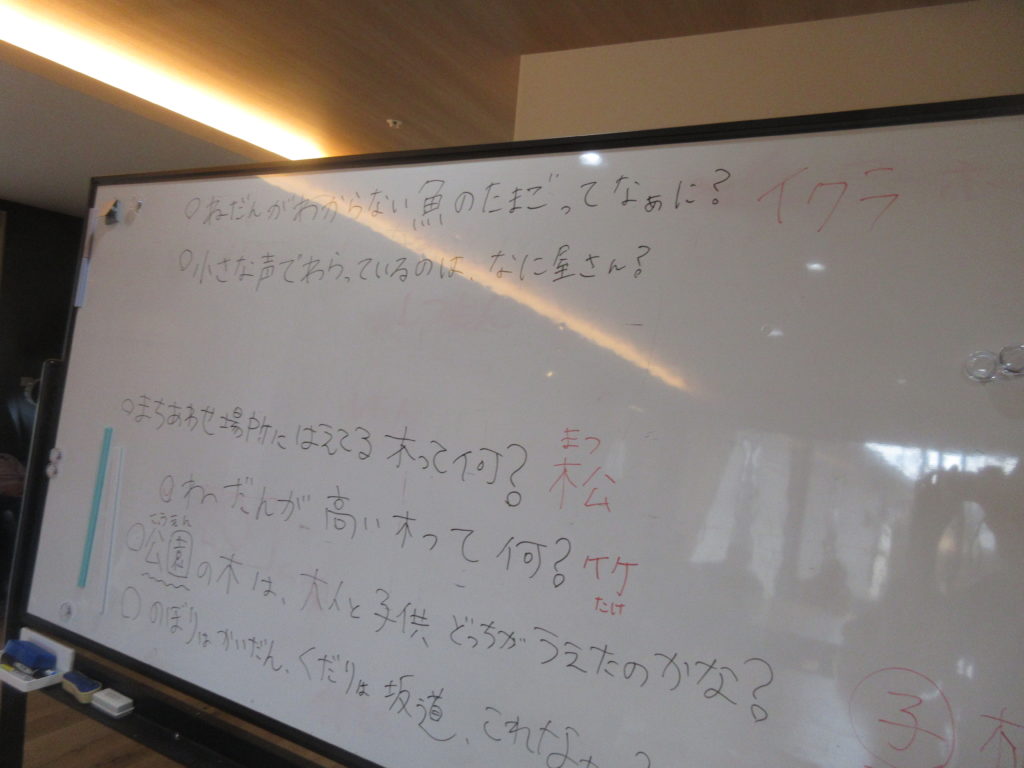 ○ねだんがわからない魚のたまごってなぁに? イクラ
○小さな声でわらっているのは、なに屋さん?
○まちあわせ場所にはえてる木って何? 松 まつ
○ねだんが高い木って何? 竹 たけ
○公園の木は、大人と子供、どっちがうえたのかな? 子
こうえん
○のぼりはかいだん、くだりは坂道、これなあ